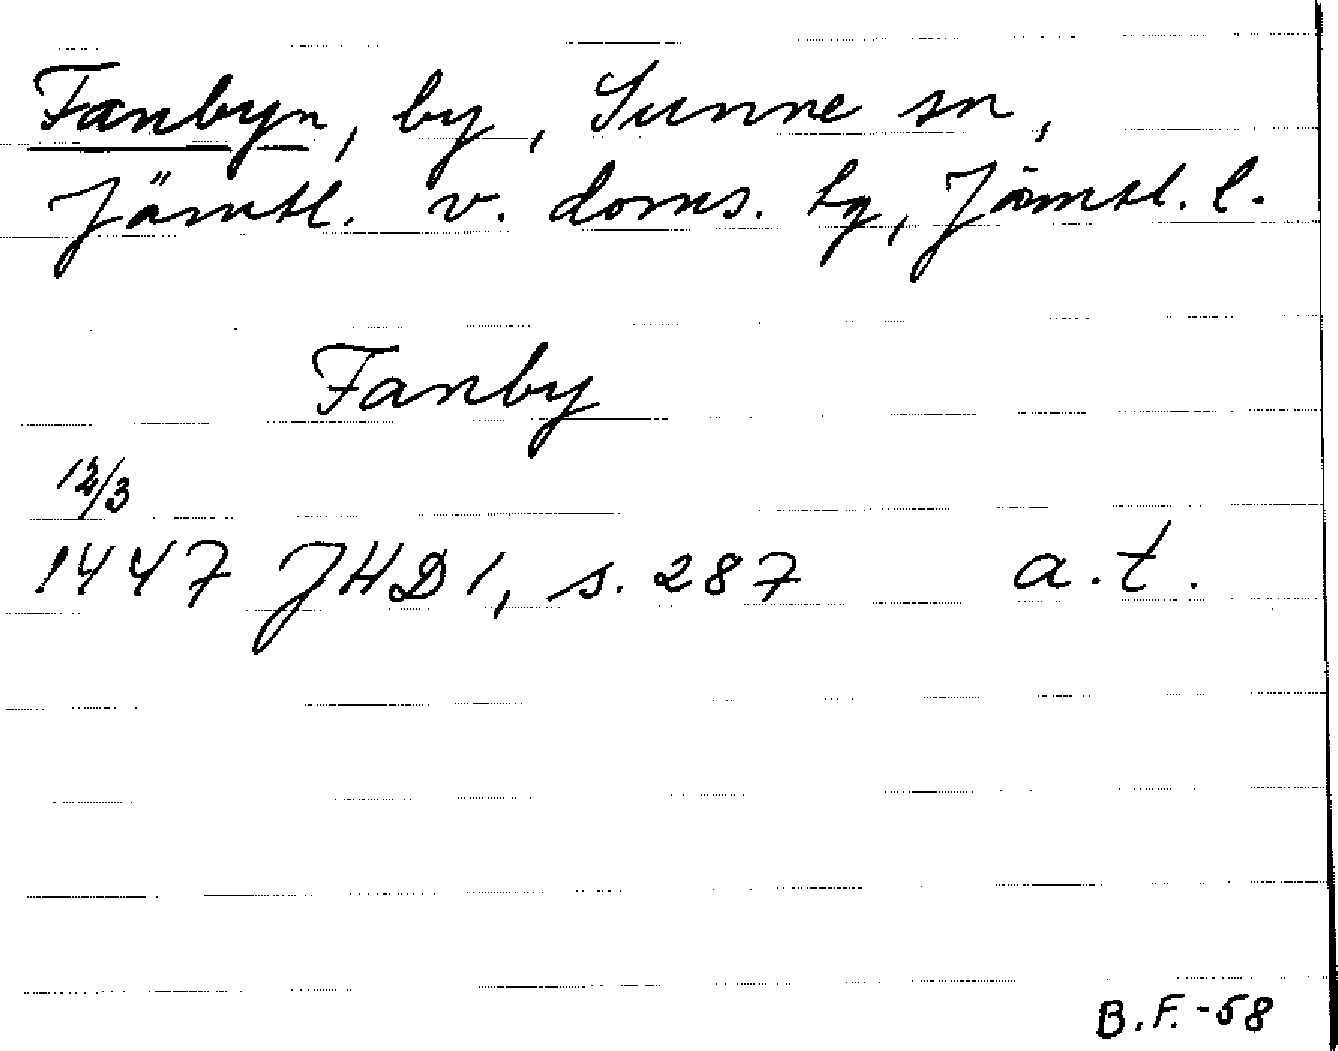 Fanbyn, by, Sunne sn,
Jämtl. v. doms. hg, Jämtl. l.
Fanby
12/3
1447 JHD 1, s. 287 a.t.
B.F.-58